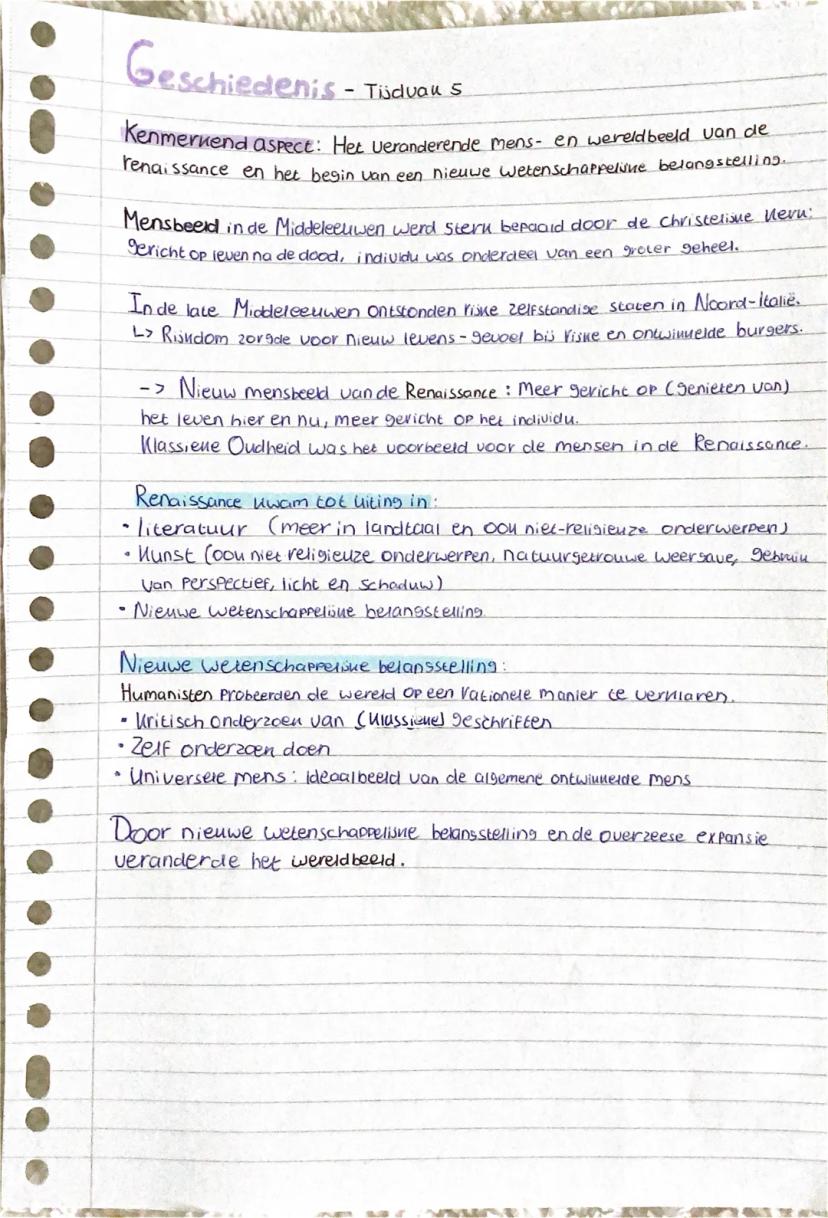 Geschiedenis - Tijdvak 5
Kenmerkend aspect: Het veranderende mens- en wereldbeeld van de
renaissance en het begin van een nieuwe wetenschappelijke belangstelling.
Mensbeeld in de Middeleeuwen werd sterk bepaald door de christelijke kerk:
gericht op leven na de dood, individu was onderdeel van een groter geheel.
In de late Middeleeuwen ontstonden rijke zelfstandige staten in Noord-Italië.
↳ Rijkdom zorgde voor nieuw levens-gevoel bij rijke en ontwikkelde burgers.
-> Nieuw mensbeeld van de Renaissance: Meer gericht op (genieten van)
het leven hier en nu, meer gericht op het individu.
Klassieke Oudheid was het voorbeeld voor de mensen in de Renaissance.
Renaissance kwam tot uiting in:
• literatuur (meer in landtaal en ook niet-religieuze onderwerpen)
• Kunst (ook niet religieuze onderwerpen, natuurgetrouwe weergave, gebruik
van perspectief, licht en schaduw)
• Nieuwe wetenschappelijke belangstelling
Nieuwe wetenschappelijke belangstelling:
Humanisten probeerden de wereld op een rationele manier te verklaren.
• Kritisch onderzoek van (klassieke) geschriften
• Zelf onderzoek doen
• Universele mens: ideaalbeeld van de algemene ontwikkelde mens
Door nieuwe wetenschappelijke belangstelling en de overzeese expansie
veranderde het wereldbeeld.